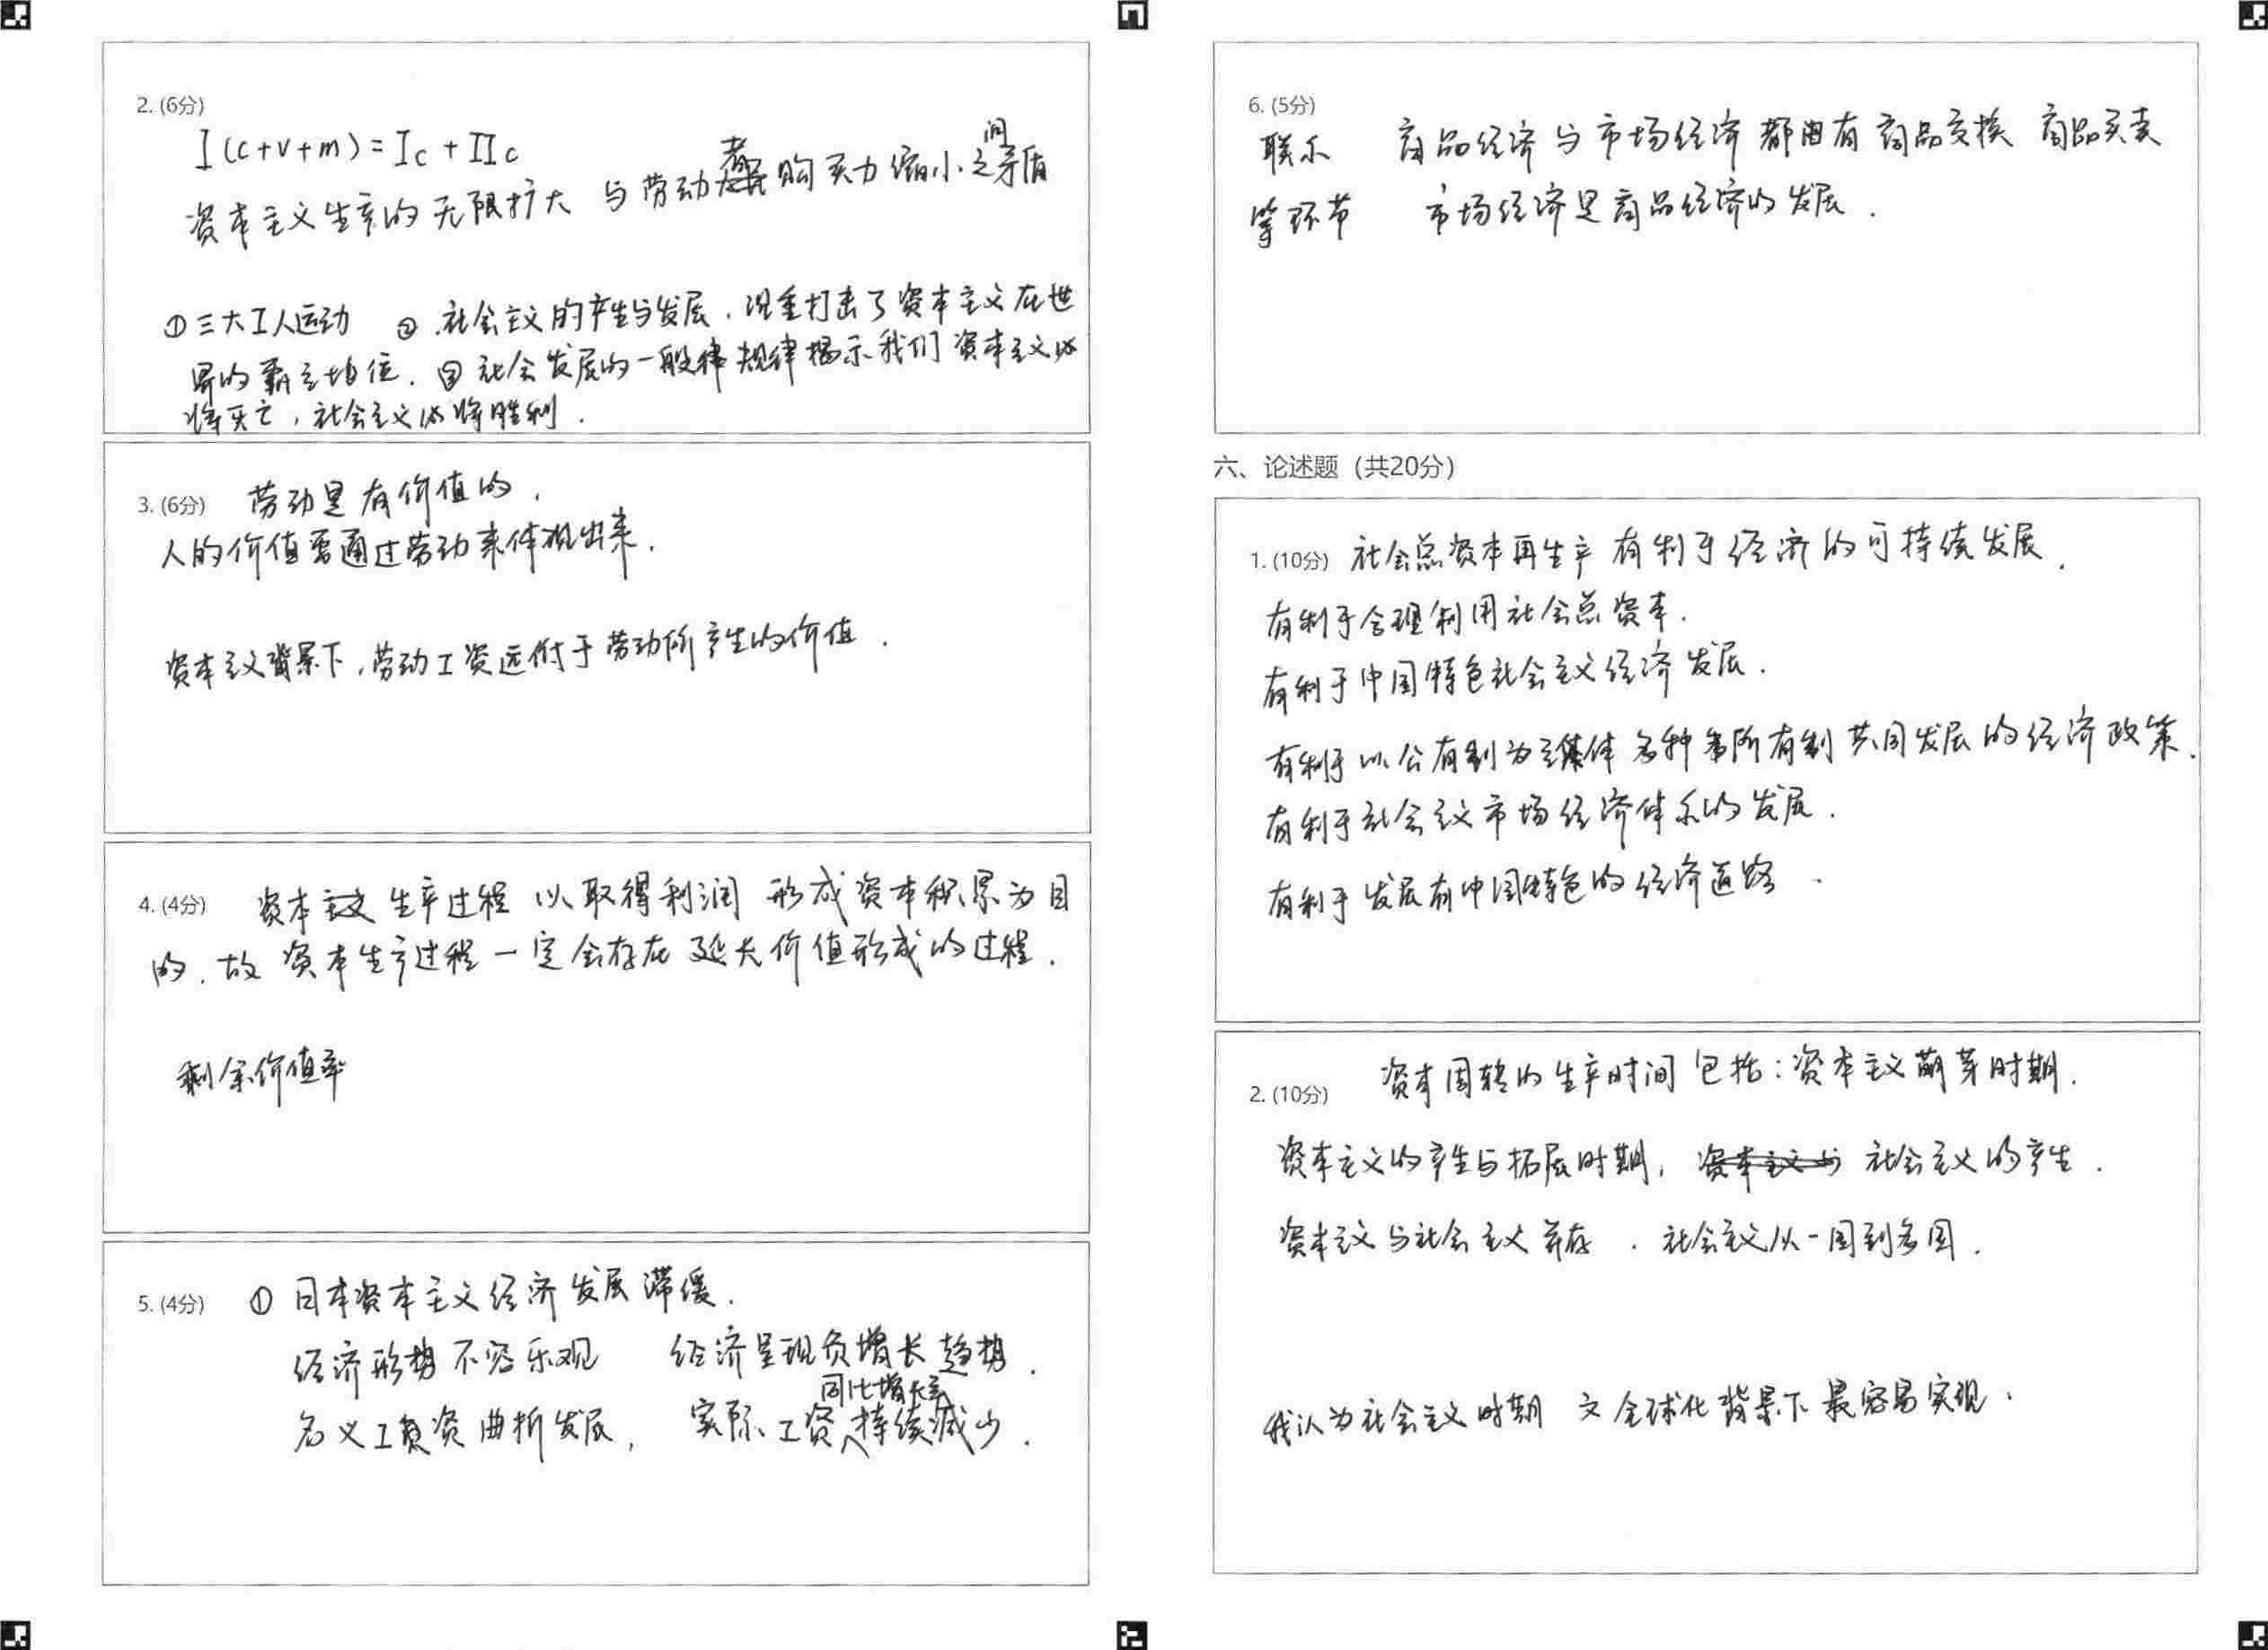 2. (6分)
I(c+v+m)=Ic+IIc
资本主义生产的无限扩大 与劳动者购买力缩小之间矛盾
①三大工人运动 ②.社会主义的产生与发展,沉重打击了资本主义在世
界的霸主地位. ③社会发展的一般规律揭示我们资本主义必
将灭亡,社会主义必将胜利.
3. (6分) 劳动是有价值的,
人的价值要通过劳动来体现出来.
资本主义背景下,劳动工资远低于劳动所产生的价值.
4. (4分) 资本主义生产过程 以取得利润 形成资本积累为目
的.故 资本生产过程一定会存在延长价值形成的过程.
剩余价值率
5. (4分) ①日本资本主义经济发展滞缓.
经济形势不容乐观 经济呈现负增长趋势.
名义工资曲折发展, 实际工资同比增长率持续减少.
6. (5分)
联系 商品经济与市场经济都由有商品交换 商品买卖
等环节 市场经济是商品经济的发展.
六、论述题(共20分)
1. (10分) 社会总资本再生产有利于经济的可持续发展.
有利于合理利用社会总资本.
有利于中国特色社会主义经济发展.
有利于以公有制为主体多种所有制共同发展的经济政策.
有利于社会主义市场经济体系的发展.
有利于发展有中国特色的经济道路.
2. (10分) 资本周转的生产时间包括:资本主义萌芽时期.
资本主义的产生与拓展时期, 社会主义的产生.
资本主义与社会主义并存.社会主义从一国到多国.
我认为社会主义时期 文全球化背景下最容易实现.